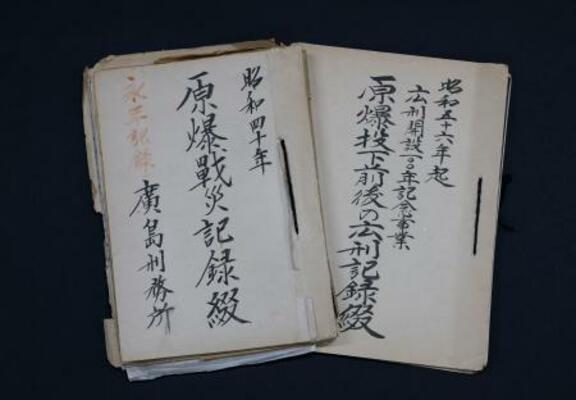 昭和五十六年起
広刑開設一〇〇年記念事業
原爆投下前後の広刑記録綴
昭和四十年
原爆戰災記録綴
廣島刑務所
記録